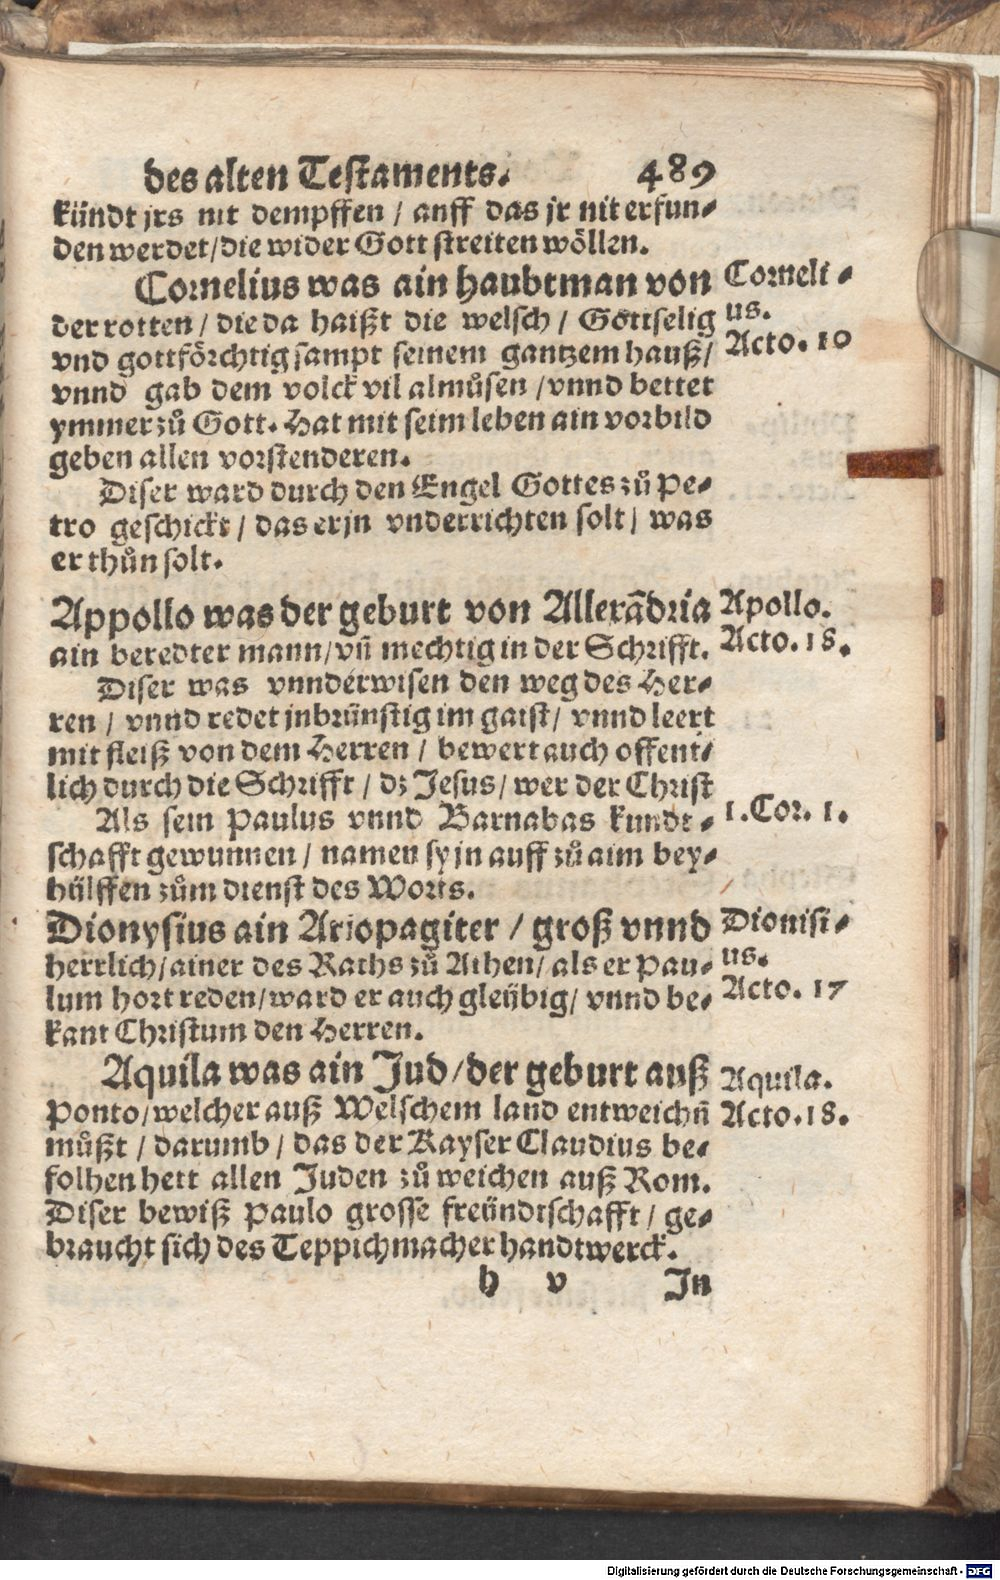 des alten Testaments. 489
kündt jrs nit dempffen / auff das jr nit erfun⸗
den werdet / die wider Gott streiten wöllen.
Cornelius was ain haubtman von
der rotten / die da haißt die welsch / Gottselig
vnd gottförchtig sampt seinem gantzem hauß /
vnnd gab dem volck vil almůsen / vnnd bettet
ymmer zů Gott. Hat mit seim leben ain vorbild
geben allen vorstenderen.
Corneli⸗
us.
Acto. 10
Diser ward durch den Engel Gottes zů Pe⸗
tro geschickt / das er jn vnderrichten solt / was
er thůn solt.
Appollo was der geburt von Allexãdria
ain beredter mann / vñ mechtig in der Schrifft.
Apollo.
Acto. 18.
Diser was vnnderwisen den weg des Her⸗
ren / vnnd redet jnbrünstig im gaist / vnnd leert
mit fleiß von dem Herren / bewert auch offent⸗
lich durch die Schrifft / dz Jesus / wer der Christ
Als sein Paulus vnnd Barnabas kundt⸗
schafft gewunnen / namen sy jn auff zů aim bey⸗
hülffen zům dienst des Worts.
1. Cor. 1.
Dionysius ain Ariopagiter / groß vnnd
herrlich / ainer des Raths zů Athen / als er Pau⸗
lum hort reden / ward er auch gleübig / vnnd be⸗
kant Christum den Herren.
Dionisi⸗
us.
Acto. 17
Aquila was ain Jud / der geburt auß
Ponto / welcher auß Welschem land entweichñ
můßt / darumb / das der Kayser Claudius be⸗
folhen hett allen Juden zů weichen auß Rom.
Diser bewiß Paulo grosse freündtschafft / ge⸗
braucht sich des Teppichmacher handtwerck.
Aquila.
Acto. 18.
h v In
Digitalisierung gefördert durch die Deutsche Forschungsgemeinschaft - DFG